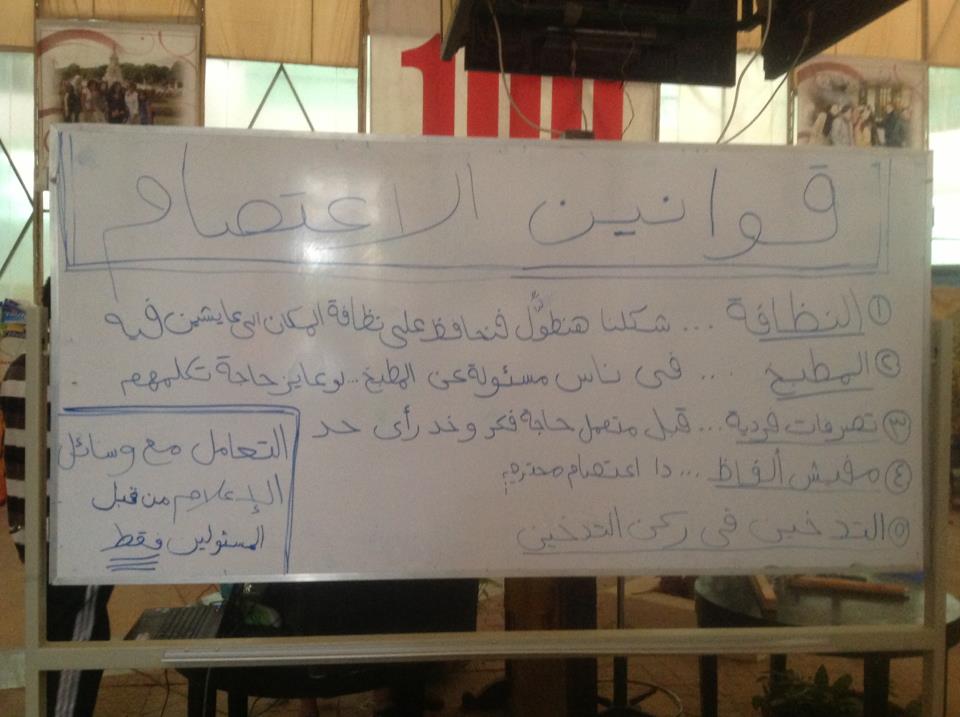 100
قوانين الاعتصام
① النظافة ... شكلنا هنطوِّل فنحافظ على نظافة المكان اللى عايشين فيه
② المطبخ ... فى ناس مسئولة عن المطبخ .. لو عايز حاجة تكلمهم
③ تصرفات فردية ... قبل متعمل حاجة فكر وخد رأى حد
④ مفيش ألفاظ ... دا اعتصام محترم
⑤ التدخين فى ركن التدخين
التعامل مع وسائل
الإعلام من قبل
المسئولين فقط